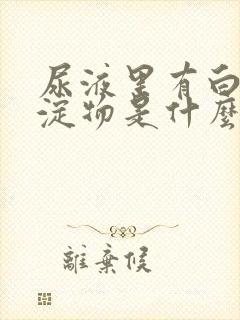 尿液里有白
淀物是什麼
離棄候